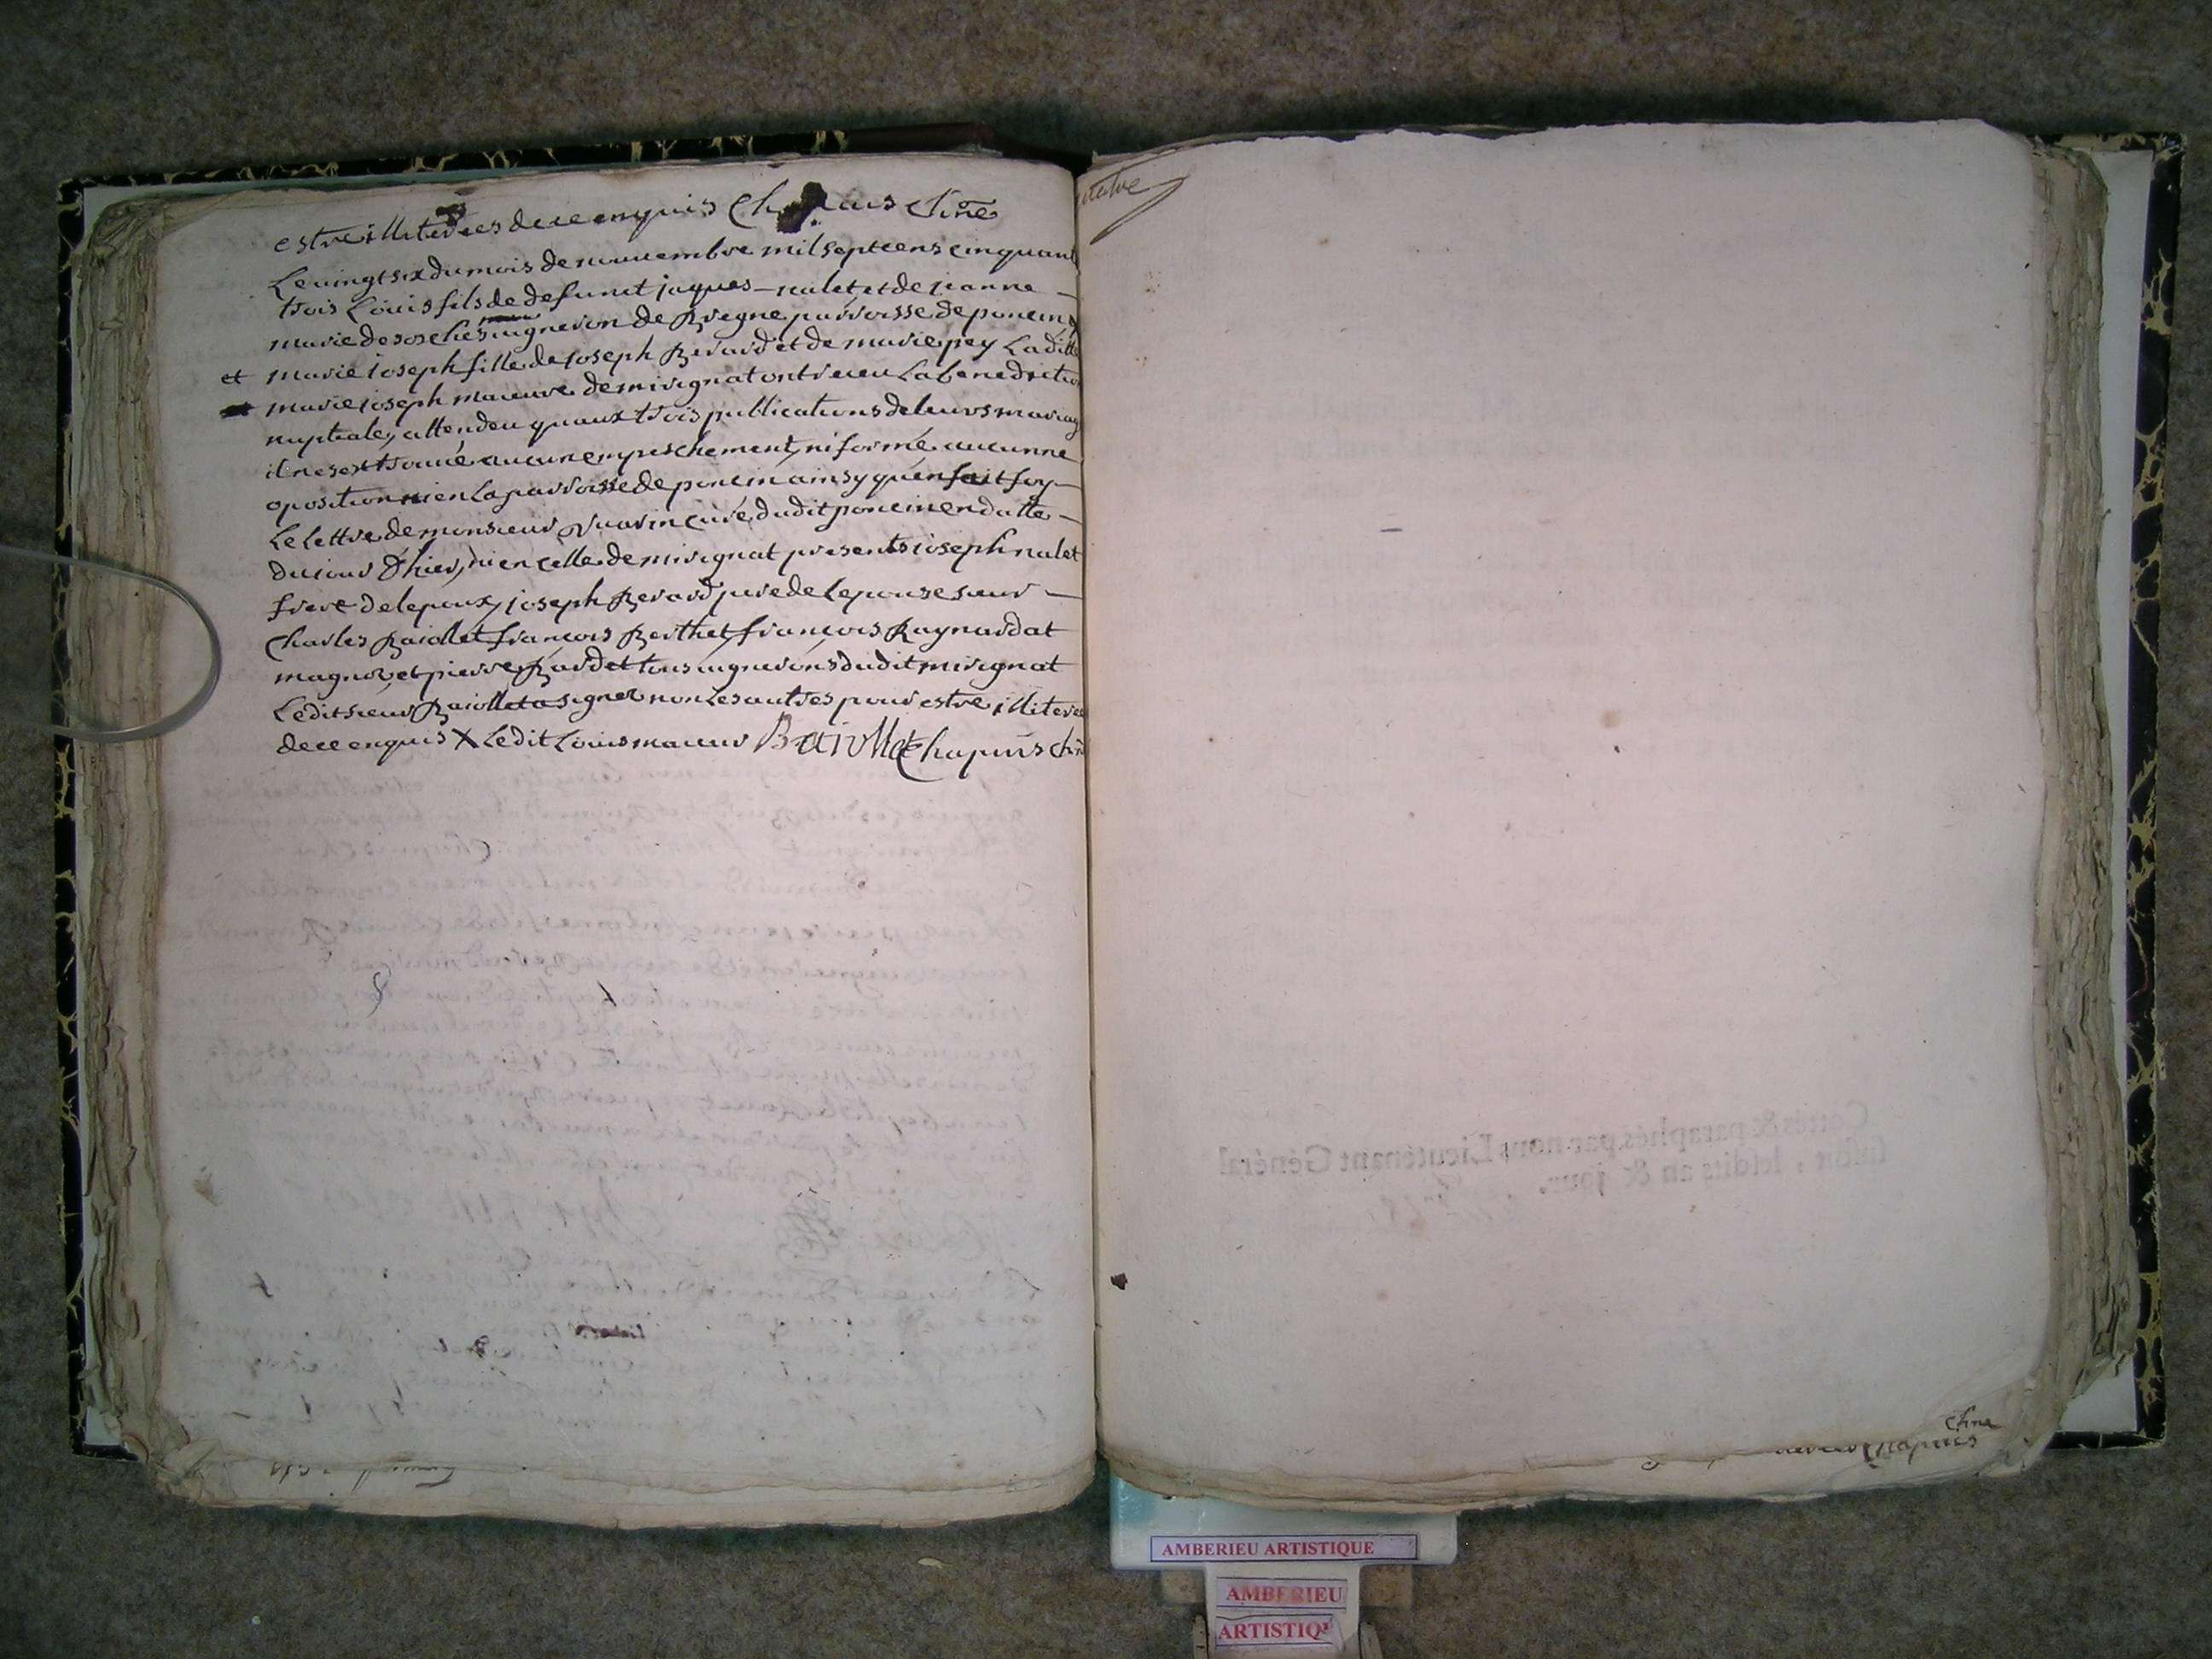 estre illiterees de ce enquis Chapuis Chne
Le vingt six du mois de nouuembre mil sept cens cinquant
trois Louis fils de defunct jaques nalet et de jeanne
marie desosches uigneron de Bregne parroisse de poncin
et marie ioseph fille de ioseph Berard et de marie pey Laditte
marie ioseph maieure de mirignat ont receu La benediction
nuptiale, attendeu quaux trois publications de leurs mariag
il ne sest trouué aucun empeschement, ni formé aucunne
oposition ni en La parroisse de poncin ainsy quen fait foy
Le Lettre de monsieur curé dudit poncin en datte
du iour d'hier, ni en celle de mirignat presents ioseph nalet
frere de lepoux, joseph Berard pere de Lepouse sieur
Charles Baiollet françois Berthet, françois Raynard at
magnoz, et pierre Bardet tous uignerons dudit mirignat
Ledit sieur Baiollet a signer non Les autres pour estre illiteree
de ce enquis X Ledit Louis maieur Baiollet Chapuis chne
Cottés & paraphés par nous, Lieutenant Général
susdit, lesdits an & jour.
Chne
Chapuis
AMBERIEU ARTISTIQUE
AMBERIEU
ARTISTIQ